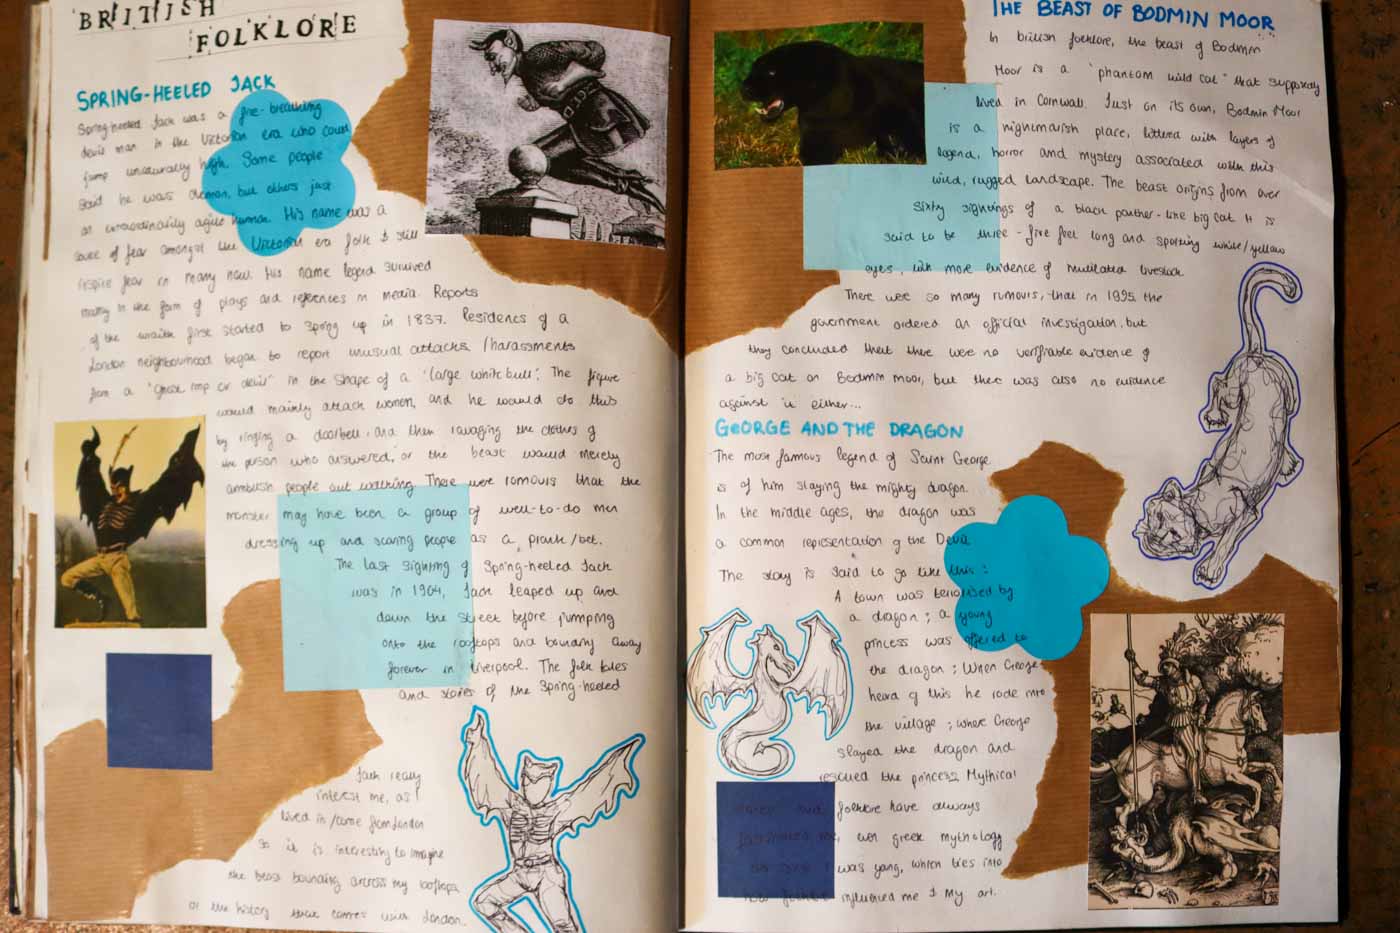 BRITISH
FOLKLORE
SPRING-HEELED JACK
Spring-heeled Jack was a fire-breathing
devil man in the Victorian era who could
jump unnaturally high. Some people
said he was demon, but others just
an extraordinarily agile human. His name was a
cause of fear amongst the Victorian era folk & still
inspire fear in many now. His name legend survived
mainly in the form of plays and references in media. Reports
of the wraith first started to spring up in 1837. Residents of a
London neighbourhood began to report unusual attacks /harassments
from a "Ghost, imp or devil" in the shape of a 'large white bull'. The figure
would mainly attack women, and he would do this
by ringing a doorbell, and then ravaging the clothes of
the person who answered, or the beast would merely
ambush people out walking. There were romours that the
monster may have been a group of well-to-do men
dressing up and scaring people as a prank/bet.
The last sighting of Spring-heeled Jack
was in 1904, Jack leaped up and
down the street before jumping
onto the rooftops and bounding away
forever in Liverpool. The folk tales
and stories of the Spring-heeled
Jack really
interest me, as I
lived in/come from London
so it is interesting to imagine
the beast bounding across my rooftops
or the history that comes with London.
THE BEAST OF BODMIN MOOR
In british folklore, the beast of Bodmin
Moor is a "phantom wild cat" that supposedly
lived in Cornwall. Just on its own, Bodmin Moor
is a nightmarish place, littered with layers of
legend, horror and mystery associated with this
wild, rugged landscape. The beast origins from over
sixty sightings of a black panther-like big cat. It is
said to be three-five feet long and sporting white/yellow
eyes, with more evidence of mutilated livestock.
There were so many rumours, that in 1995 the
government ordered an official investigation, but
they concluded that there were no verifiable evidence of
a big cat on Bodmin moor, but there was also no evidence
against it either...
GEORGE AND THE DRAGON
The most famous legend of Saint George
is of him slaying the mighty dragon.
In the middle ages, the dragon was
a common representation of the Devil
The story is said to go like this:
A town was terrorised by
a dragon; a young
princess was offered to
the dragon; When George
heard of this he rode into
the village; where George
slayed the dragon and
rescued the princess. Mythical
and folklore have always
fascinated me, even greek mythology
I was yong, which ties into
how folklore influenced me & my art.